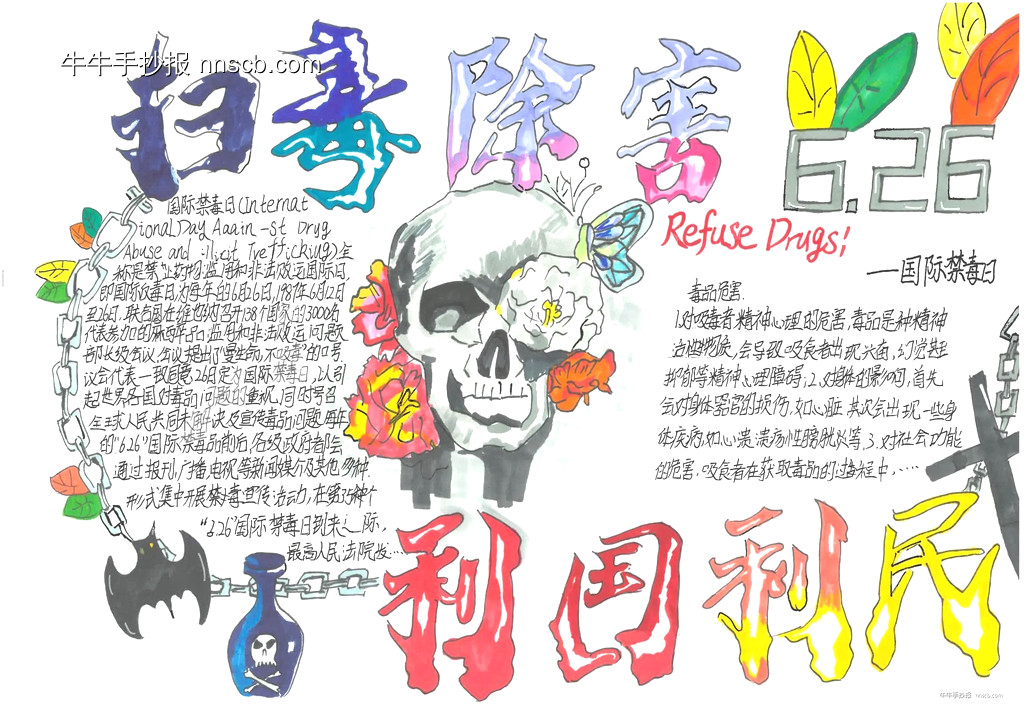 牛牛手抄报 nnscb.com
扫毒除害
6.26
Refuse Drugs!
—国际禁毒日
国际禁毒日(Internat
ional Day Aaain-st Drug
Abuse and illicit Trafficking)全
称是禁止药物滥用和非法贩运国际日,
即国际反毒日,为每年的6月26日,1987年6月12日
至26日,联合国在维也纳召开138个国家的3000名
代表参加的麻醉品滥用和非法贩运问题
部长级会议,会议提出了"爱生命,不吸毒"的口号
议会代表一致同意26日定为国际禁毒日,以引
起世界各国对毒品问题的重视,同时号召
全球人民共同来解决及宣传毒品问题,每年
的"6.26"国际禁毒品前后,各级政府都会
通过报刊,广播电视等新闻媒介及其他多种
形式集中开展禁毒宣传活动,在第35个
"6.26"国际禁毒日到来之际,
最高人民法院发……
毒品危害.
1.对吸毒者精神心理的危害,毒品是种精神
活性物质,会导致吸食者出现兴奋,幻觉甚至
抑郁等精神心理障碍;2.对身体的影响,首先
会对身体器官的损伤,如心脏,其次会出现一些身
体疾病,如心溃,溃疡性膀胱炎等,3.对社会功能
的危害.吸食者在获取毒品的过程中,……
利国利民
牛牛手抄报 nnscb.com